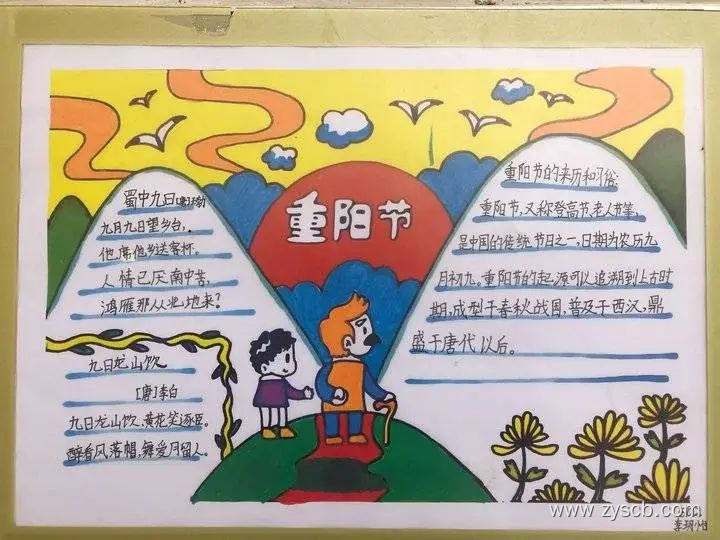 重阳节
蜀中九日
九月九日望乡台，
他席他乡送客杯。
人情已厌南中苦，
鸿雁那从北地来？
九日龙山饮
[唐]李白
九日龙山饮，黄花笑逐臣。
醉看风落帽，舞爱月留人。
重阳节的来历和习俗
重阳节，又称登高节、老人节等，
是中国的传统节日之一，日期为农历九
月初九。重阳节的起源可以追溯到上古时
期，成型于春秋战国，普及于西汉，鼎
盛于唐代以后。
www.zyscb.com